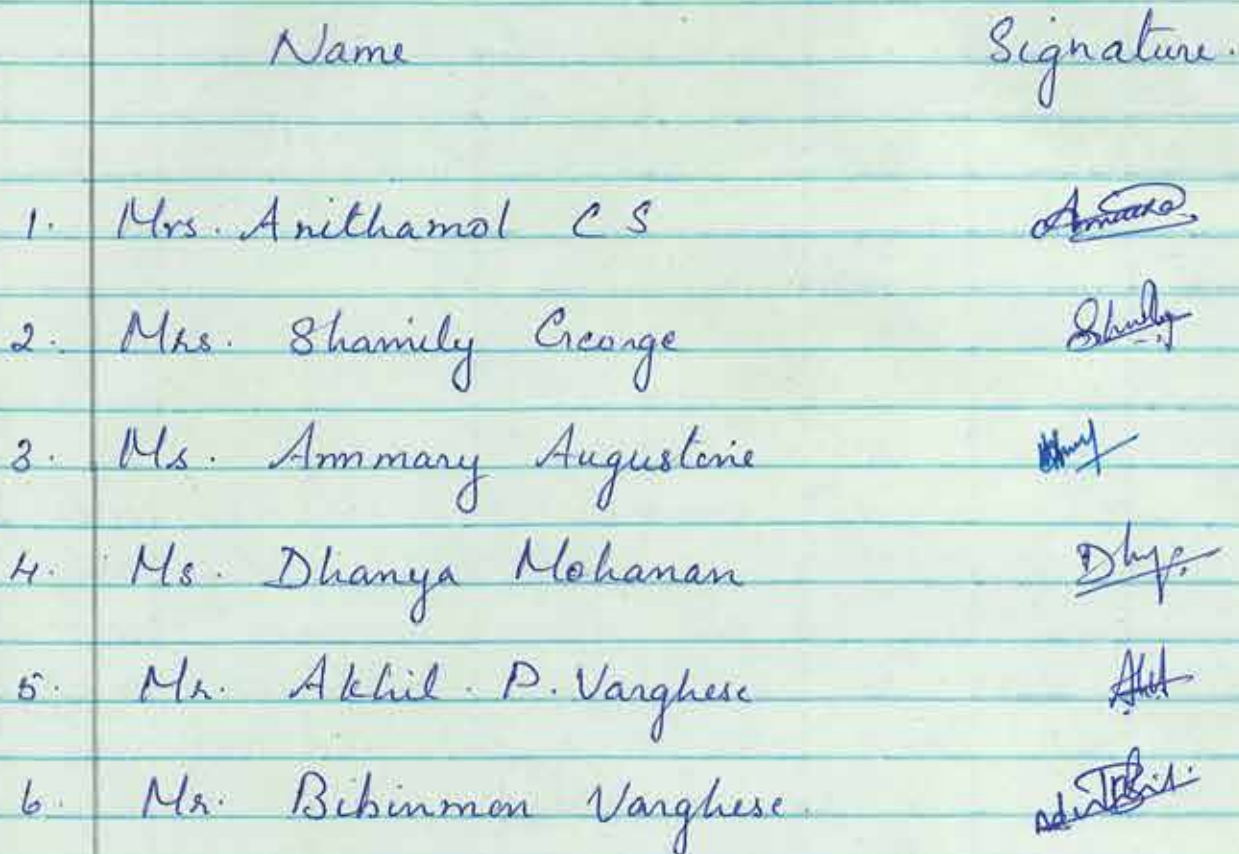 Name Signature.
1. Mrs. Anithamol C S
2. Mrs. Shamily George
3. Ms. Annmary Augustine
4. Ms. Dhanya Mohanan
5. Mr. Akhil P. Varghese
6. Mr. Bibinmon Varghese.